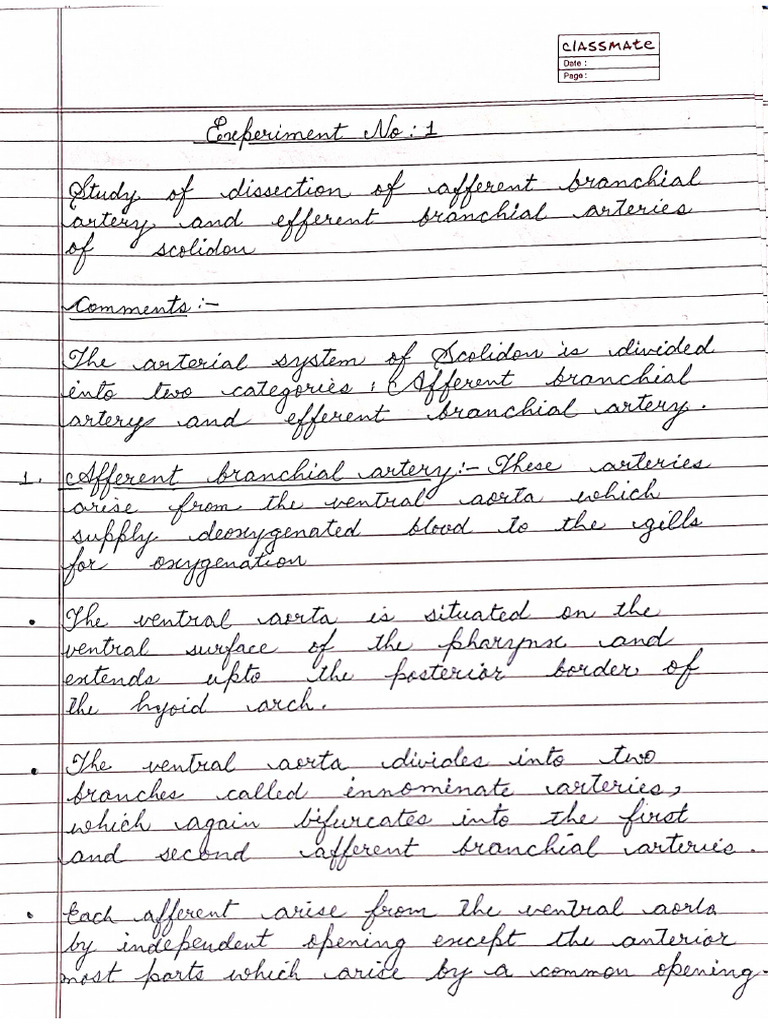 classmate
Date :
Page :
Experiment No : 1
Study of dissection of afferent branchial
artery and efferent branchial arteries
of scolidon
Comments :-
The arterial system of Scolidon is divided
into two categories : Afferent branchial
artery and efferent branchial artery.
1. Afferent branchial artery :- These arteries
arise from the ventral aorta which
supply deoxygenated blood to the gills
for oxygenation
• The ventral aorta is situated on the
ventral surface of the pharynx and
extends upto the posterior border of
the hyoid arch.
• The ventral aorta divides into two
branches called innominate arteries,
which again bifurcates into the first
and second afferent branchial arteries.
• Each afferent arise from the ventral aorta
by independent opening except the anterior
most parts which arise by a common opening.